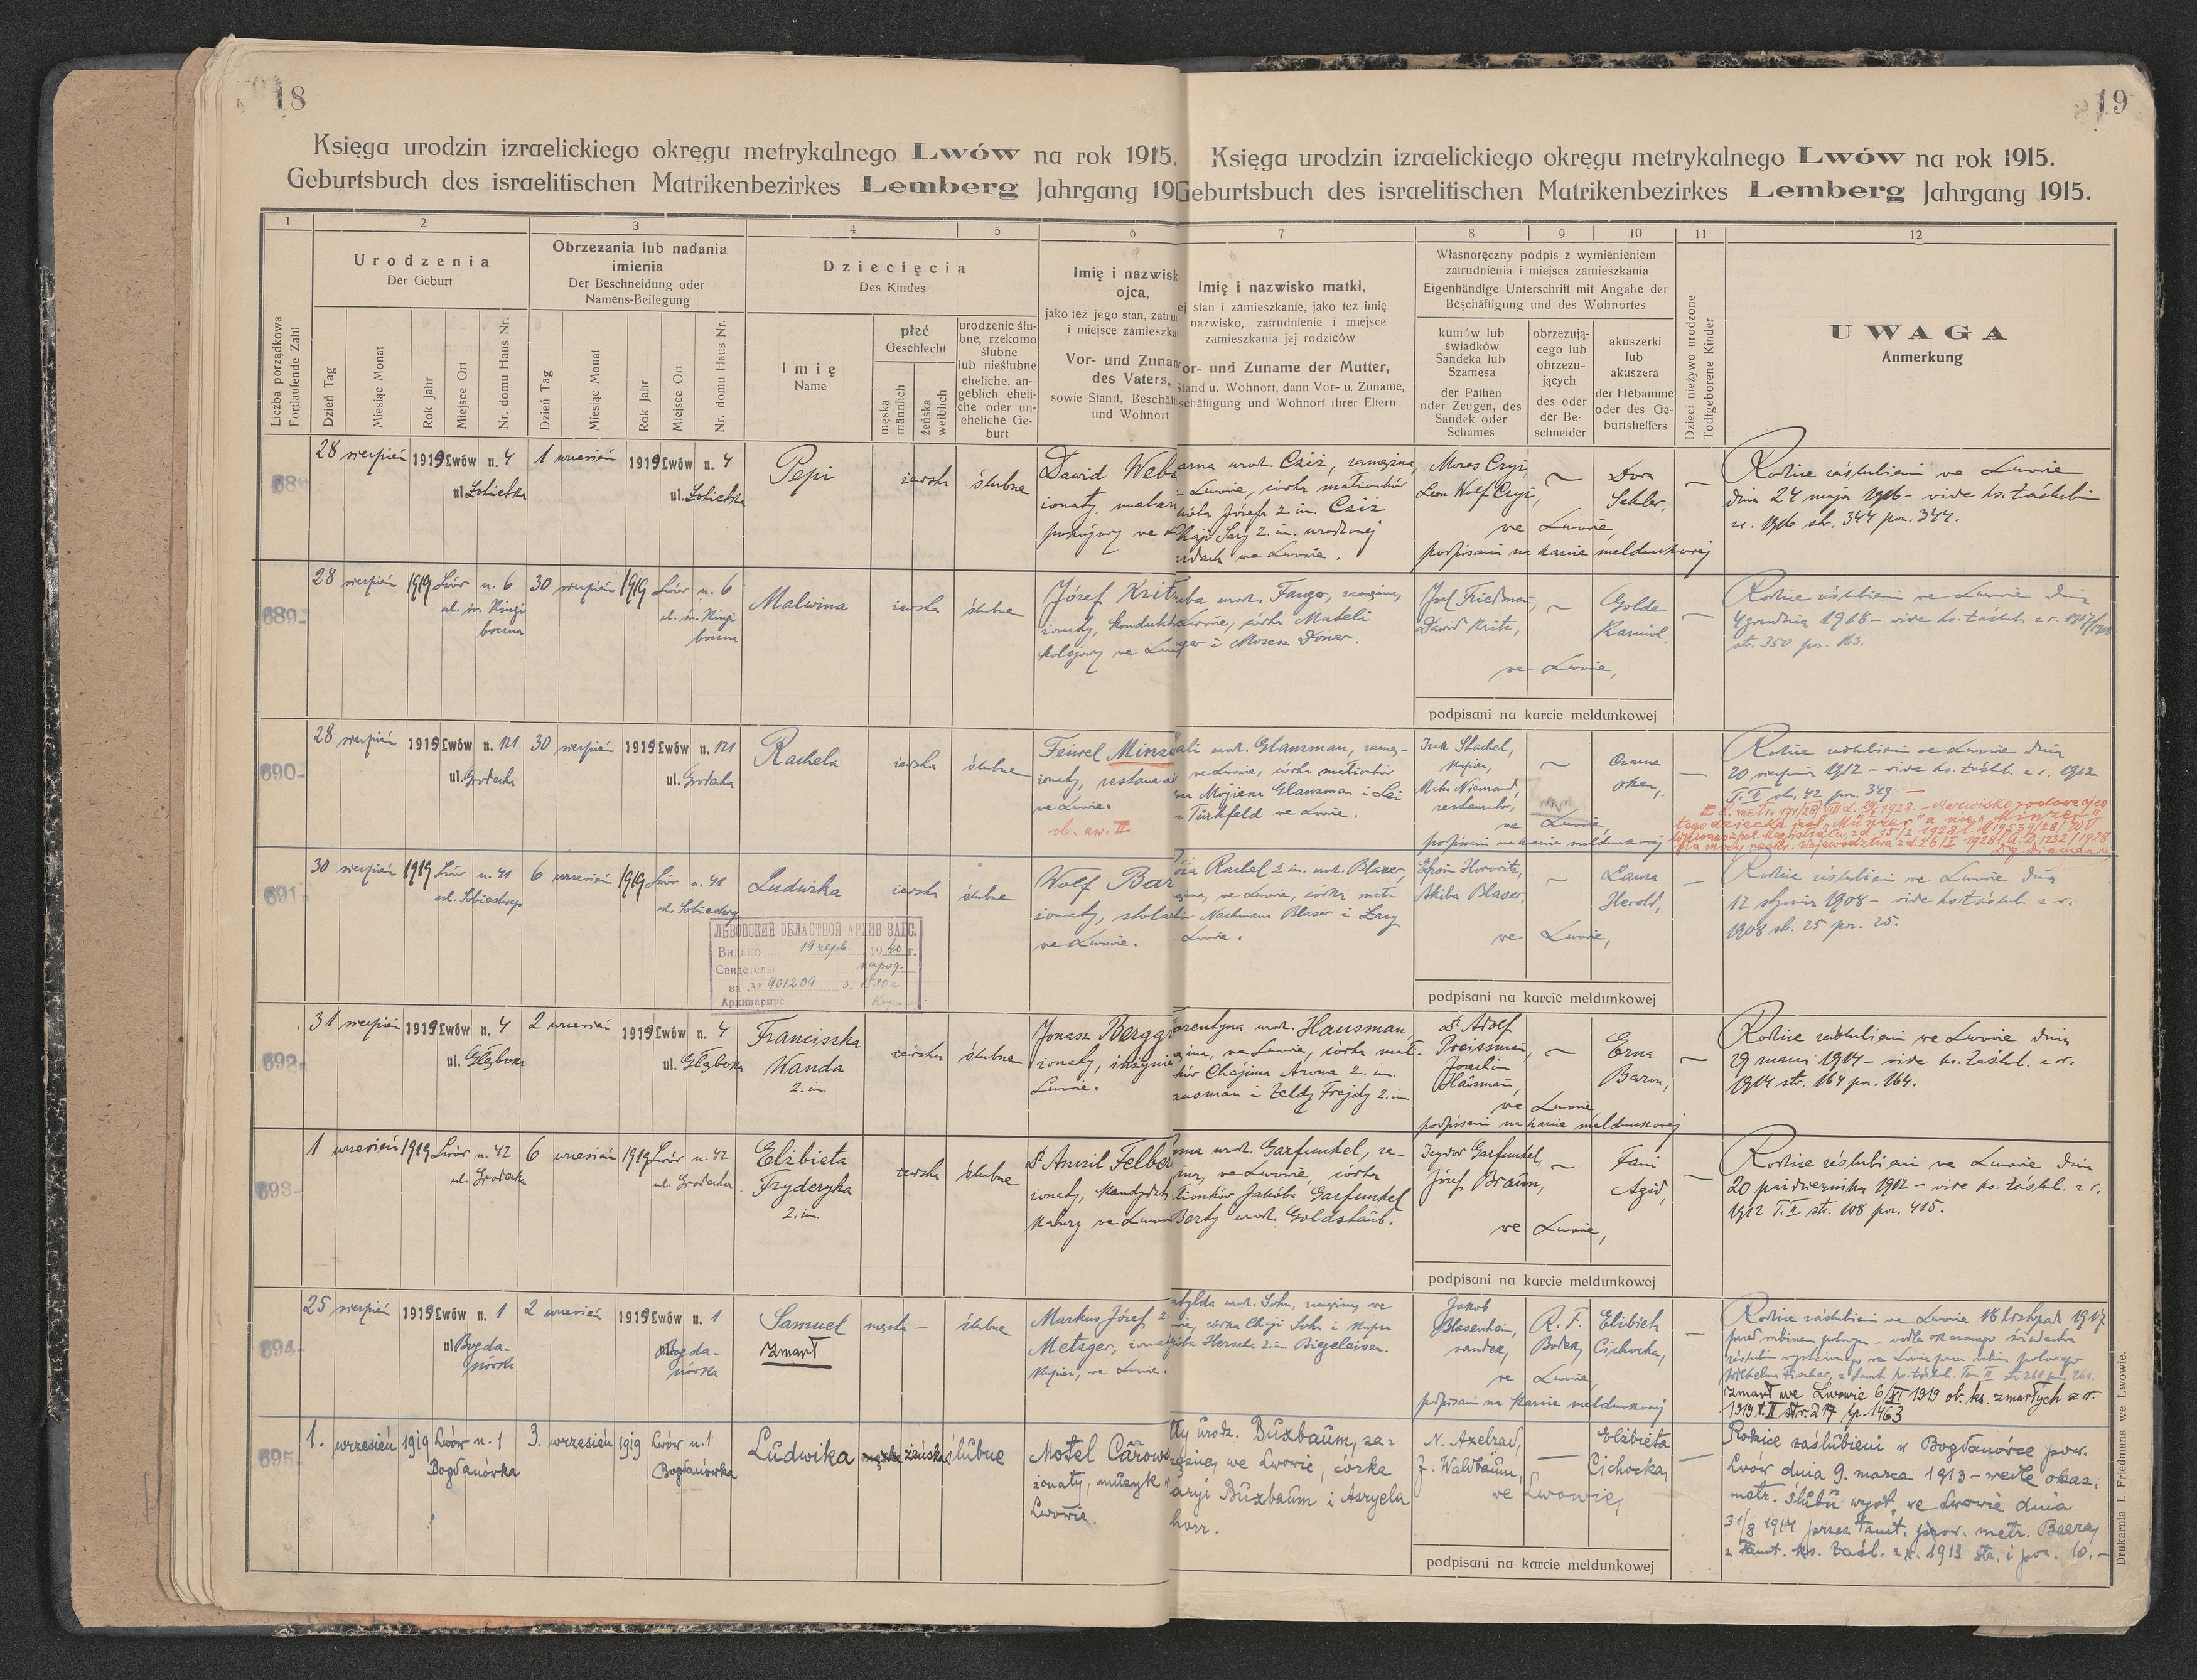 18
19
Księga urodzin izraelickiego okręgu metrykalnego Lwów na rok 1915.
Geburtsbuch des israelitischen Matrikenbezirkes Lemberg Jahrgang 19
Księga urodzin izraelickiego okręgu metrykalnego Lwów na rok 1915.
Geburtsbuch des israelitischen Matrikenbezirkes Lemberg Jahrgang 1915.
1 2 3 4 5 6 7 8 9 10 11 12
Liczba porządkowa
Fortlaufende Zahl
Urodzenia
Der Geburt
Dzień Tag
Miesiąc Monat
Rok Jahr
Miejsce Ort
Nr. domu Haus Nr.
Obrzezania lub nadania
imienia
Der Beschneidung oder
Namens-Beilegung
Dzień Tag
Miesiąc Monat
Rok Jahr
Miejsce Ort
Nr. domu Haus Nr.
Dziecięcia
Des Kindes
Imię
Name
płeć
Geschlecht
męska
männlich
żeńska
weiblich
urodzenie ślu-
bne, rzekomo
ślubne
lub nieślubne
eheliche, an-
geblich eheli-
che oder un-
eheliche Ge-
burt
Imię i nazwisk
ojca,
jako też jego stan, zatru
i miejsce zamieszka
Vor- und Zunan
des Vaters,
sowie Stand, Beschäft
und Wohnort
Imię i nazwisko matki,
ej stan i zamieszkanie, jako też imię
nazwisko, zatrudnienie i miejsce
zamieszkania jej rodziców
or- und Zuname der Mutter,
Stand u. Wohnort, dann Vor- u. Zuname,
schäftigung und Wohnort ihrer Eltern
Własnoręczny podpis z wymienieniem
zatrudnienia i miejsca zamieszkania
Eigenhändige Unterschrift mit Angabe der
Beschäftigung und des Wohnortes
kumów lub
świadków
Sandeka lub
Szamesa
der Pathen
oder Zeugen, des
Sandek oder
Schames
obrzezują-
cego lub
obrzezu-
jących
des oder
der Be-
schneider
akuszerki
lub
akuszera
der Hebamme
oder des Ge-
burtshelfers
Dzieci nieżywo urodzone
Todtgeborene Kinder
UWAGA
Anmerkung
688
28 sierpień 1919 Lwów n. 4 1 wrzesień 1919 Lwów n. 4
Pepi
żeńska ślubne
Dawid Web
pokojowy we
urod. Cziż, zamężna,
Lwowie, córka małżonków
Józefa 2. im. Cziż
Sary 2. im. urodzonej
we Lwowie.
Moses Czyż,
Leon Wolf Czyż,
Dora
Sekler,
we Lwowie,
podpisani na karcie meldunkowej
Rodzice zaślubieni we Lwowie
dnia 24 maja 1916 - vide ks. zaślubin
z r. 1916 str. 344 poz. 344.
689
28 sierpień 1919 Lwów n. 6 30 sierpień 1919 Lwów n. 6
ul. św. Kingi
boczna
ul. św. Kingi
boczna
Malwina
żeńska ślubne
Józef Krit
żonaty, kondukt
kolejowy we
urod. Fanger, zamężna,
Lwowie, córka Mateli
i Mozesa Doner.
Josef Friedman,
Dawid Kritz,
Golde
Karniol,
we Lwowie,
podpisani na karcie meldunkowej
Rodzice zaślubieni we Lwowie dnia
4 grudnia 1918 - vide ks. zaślub. z r. 1917/1918
str. 350 poz. 163.
690
28 sierpień 1919 Lwów n. 121 30 sierpień 1919 Lwów n. 121
ul. Grodecka
ul. Grodecka
Rachela
żeńska ślubne
Feiwel Minz
żonaty, restaurat
we Lwowie.
ob. uw. II
urod. Glanzman, zamęż-
we Lwowie, córka małżonków
Mojżesza Glanzman i Lei
z Türkfeld we Lwowie.
Izak Stachel,
kupiec,
Maks Niemand,
restaurator,
we Lwowie
podpisani na karcie meldunkowej
Rodzice zaślubieni we Lwowie dnia
20 sierpnia 1912 - vide ks. zaślub. z r. 1912
T. II str. 42 poz. 349. -
tego dziecka jest „Münzer" a nie „Minzer"
691
30 sierpień 1919 Lwów n. 41 6 wrzesień 1919 Lwów n. 41
ul. Sobieskiego
ul. Sobieskiego
Ludwika
żeńska ślubne
Wolf Bar
żonaty, stolarz
we Lwowie.
Rachel 2 im. urod. Blaser,
we Lwowie, córka małż-
Nachmana Blaser i Sary
Lwowie.
Efroim Horowitz,
Akiba Blaser,
Laura
Herold,
we Lwowie,
podpisani na karcie meldunkowej
Rodzice zaślubieni we Lwowie dnia
12 stycznia 1908 - vide ks. zaślub. z r.
1908 str. 25 poz. 25.
ЛЬВОВСКИЙ ОБЛАСТНОЙ АРХИВ ЗАГС.
Видано 19 черв. 1940 г.
Свидетель народ.
за № 901209
Архивариус
692
31 sierpień 1919 Lwów n. 4 2 wrzesień 1919 Lwów n. 4
ul. Głęboka
ul. Głęboka
Franciszka
Wanda
2. im.
żeńska ślubne
Jonasz Bergg
żonaty, inżynie
Lwowie.
urod. Hausman,
we Lwowie, córka mał-
Chajima Arona 2. im.
i Zeldy Frejdy 2. im
Dr. Adolf
Preissman,
Joachim
Hausman,
Erna
Baron,
we Lwowie
podpisani na karcie meldunkowej
Rodzice zaślubieni we Lwowie dnia
29 marca 1914 - vide ks. zaślub. z r.
1914 str. 164 poz. 164.
693
1 wrzesień 1919 Lwów n. 42 6 wrzesień 1919 Lwów n. 42
ul. Grodecka
ul. Grodecka
Elżbieta
Fryderyka
2. im.
żeńska ślubne
Dr. Anzil Felbe
żonaty, kandydat
we Lwowie
urod. Garfunkel, za-
we Lwowie, córka
Jakóba Garfunkel
Berty urod. Goldstaub.
Izydor Garfunkel,
Józef Braun,
Fani
Agid,
we Lwowie,
podpisani na karcie meldunkowej
Rodzice zaślubieni we Lwowie dnia
20 października 1912 - vide ks. zaślub. z r.
1912 T. II str. 108 poz. 415.
694
25 sierpień 1919 Lwów n. 1 2 wrzesień 1919 Lwów n. 1
ul. Bogda-
nówka
Bogda-
nówka
Samuel
Zmarł
męska - ślubne
Markus Józef 2.
Metzger, żonaty
kupiec, we Lwowie.
urod. Sohn, zamężna, we
córka Chaji Sohn i kupca
Herscha 2. im. Biegeleisen.
Jakob
Blasenstein,
sandek,
R. F.
Bodek,
Elżbieta
Cichocka,
we Lwowie,
podpisani na karcie meldunkowej
Rodzice zaślubieni we Lwowie 18 listopada 1917
Zmarł we Lwowie 6/XI 1919 ob. ks. zmarłych z r.
1919 t. II str. 217 lp. 1463
695
1. wrzesień 1919 Lwów n. 1 3. wrzesień 1919 Lwów n. 1
Bogdanówka
Bogdanówka
Ludwika
żeńska ślubne
Motel Carow
żonaty, muzyk
Lwowie.
urodz. Buxbaum, za-
mężnej we Lwowie, córka
Buxbaum i Asryela
horr.
N. Axelrad,
J. Waldbaum,
Elżbieta
Cichocka,
we Lwowie,
podpisani na karcie meldunkowej
Rodzice zaślubieni w Bogdanówce pow.
Lwów dnia 9. marca 1913 - wedle okaz.
metr. ślubu wyst. we Lwowie dnia
31/8 1914 przez tamt. prow. metr. Beera,
z tamt. ks. zaśl. z r. 1913 str. i poz. 10. -
Drukarnia I. Friedmana we Lwowie.